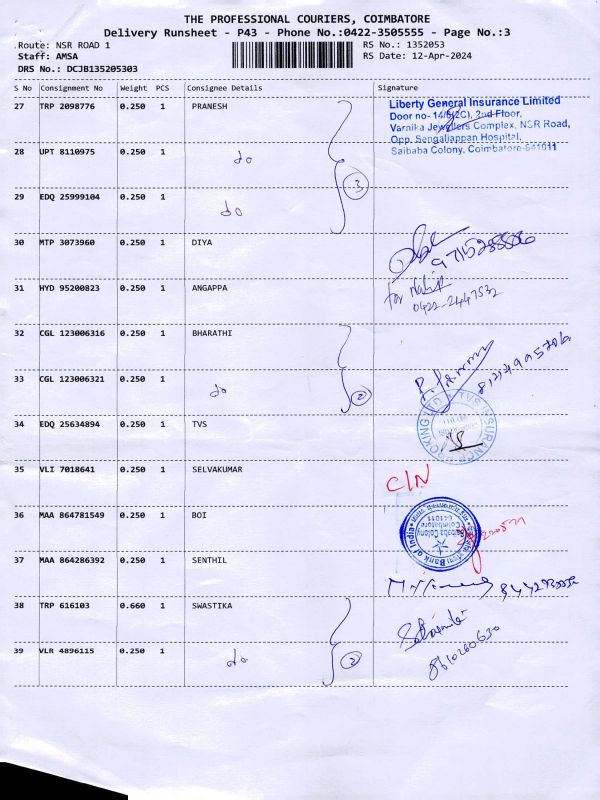 THE PROFESSIONAL COURIERS, COIMBATORE
Delivery Runsheet - P43 - Phone No.:0422-3505555 - Page No.:3
Route: NSR ROAD 1 RS No.: 1352053
Staff: AMSA RS Date: 12-Apr-2024
DRS No.: DCJB135205303
S No Consignment No Weight PCS Consignee Details Signature
27 TRP 2098776 0.250 1 PRANESH
Liberty General Insurance Limited
Door no- 14/5(2C), 2nd Floor,
Varnika Jewellers Complex, NSR Road,
Opp. Sengaliappan Hospital,
Saibaba Colony, Coimbatore-641011
28 UPT 8110975 0.250 1 do
3
29 EDQ 25999104 0.250 1 do
30 MTP 3073960 0.250 1 DIYA
31 HYD 95200823 0.250 1 ANGAPPA
for
0422-2447532
32 CGL 123006316 0.250 1 BHARATHI
33 CGL 123006321 0.250 1 do 2
34 EDQ 25634894 0.250 1 TVS
TVS INSURANCE BROKING
35 VLI 7018641 0.250 1 SELVAKUMAR C/N
36 MAA 864781549 0.250 1 BOI
Bank of India
Saibaba Colony
Coimbatore
641011
37 MAA 864286392 0.250 1 SENTHIL
38 TRP 616103 0.660 1 SWASTIKA
8610260630
39 VLR 4896115 0.250 1 do 2